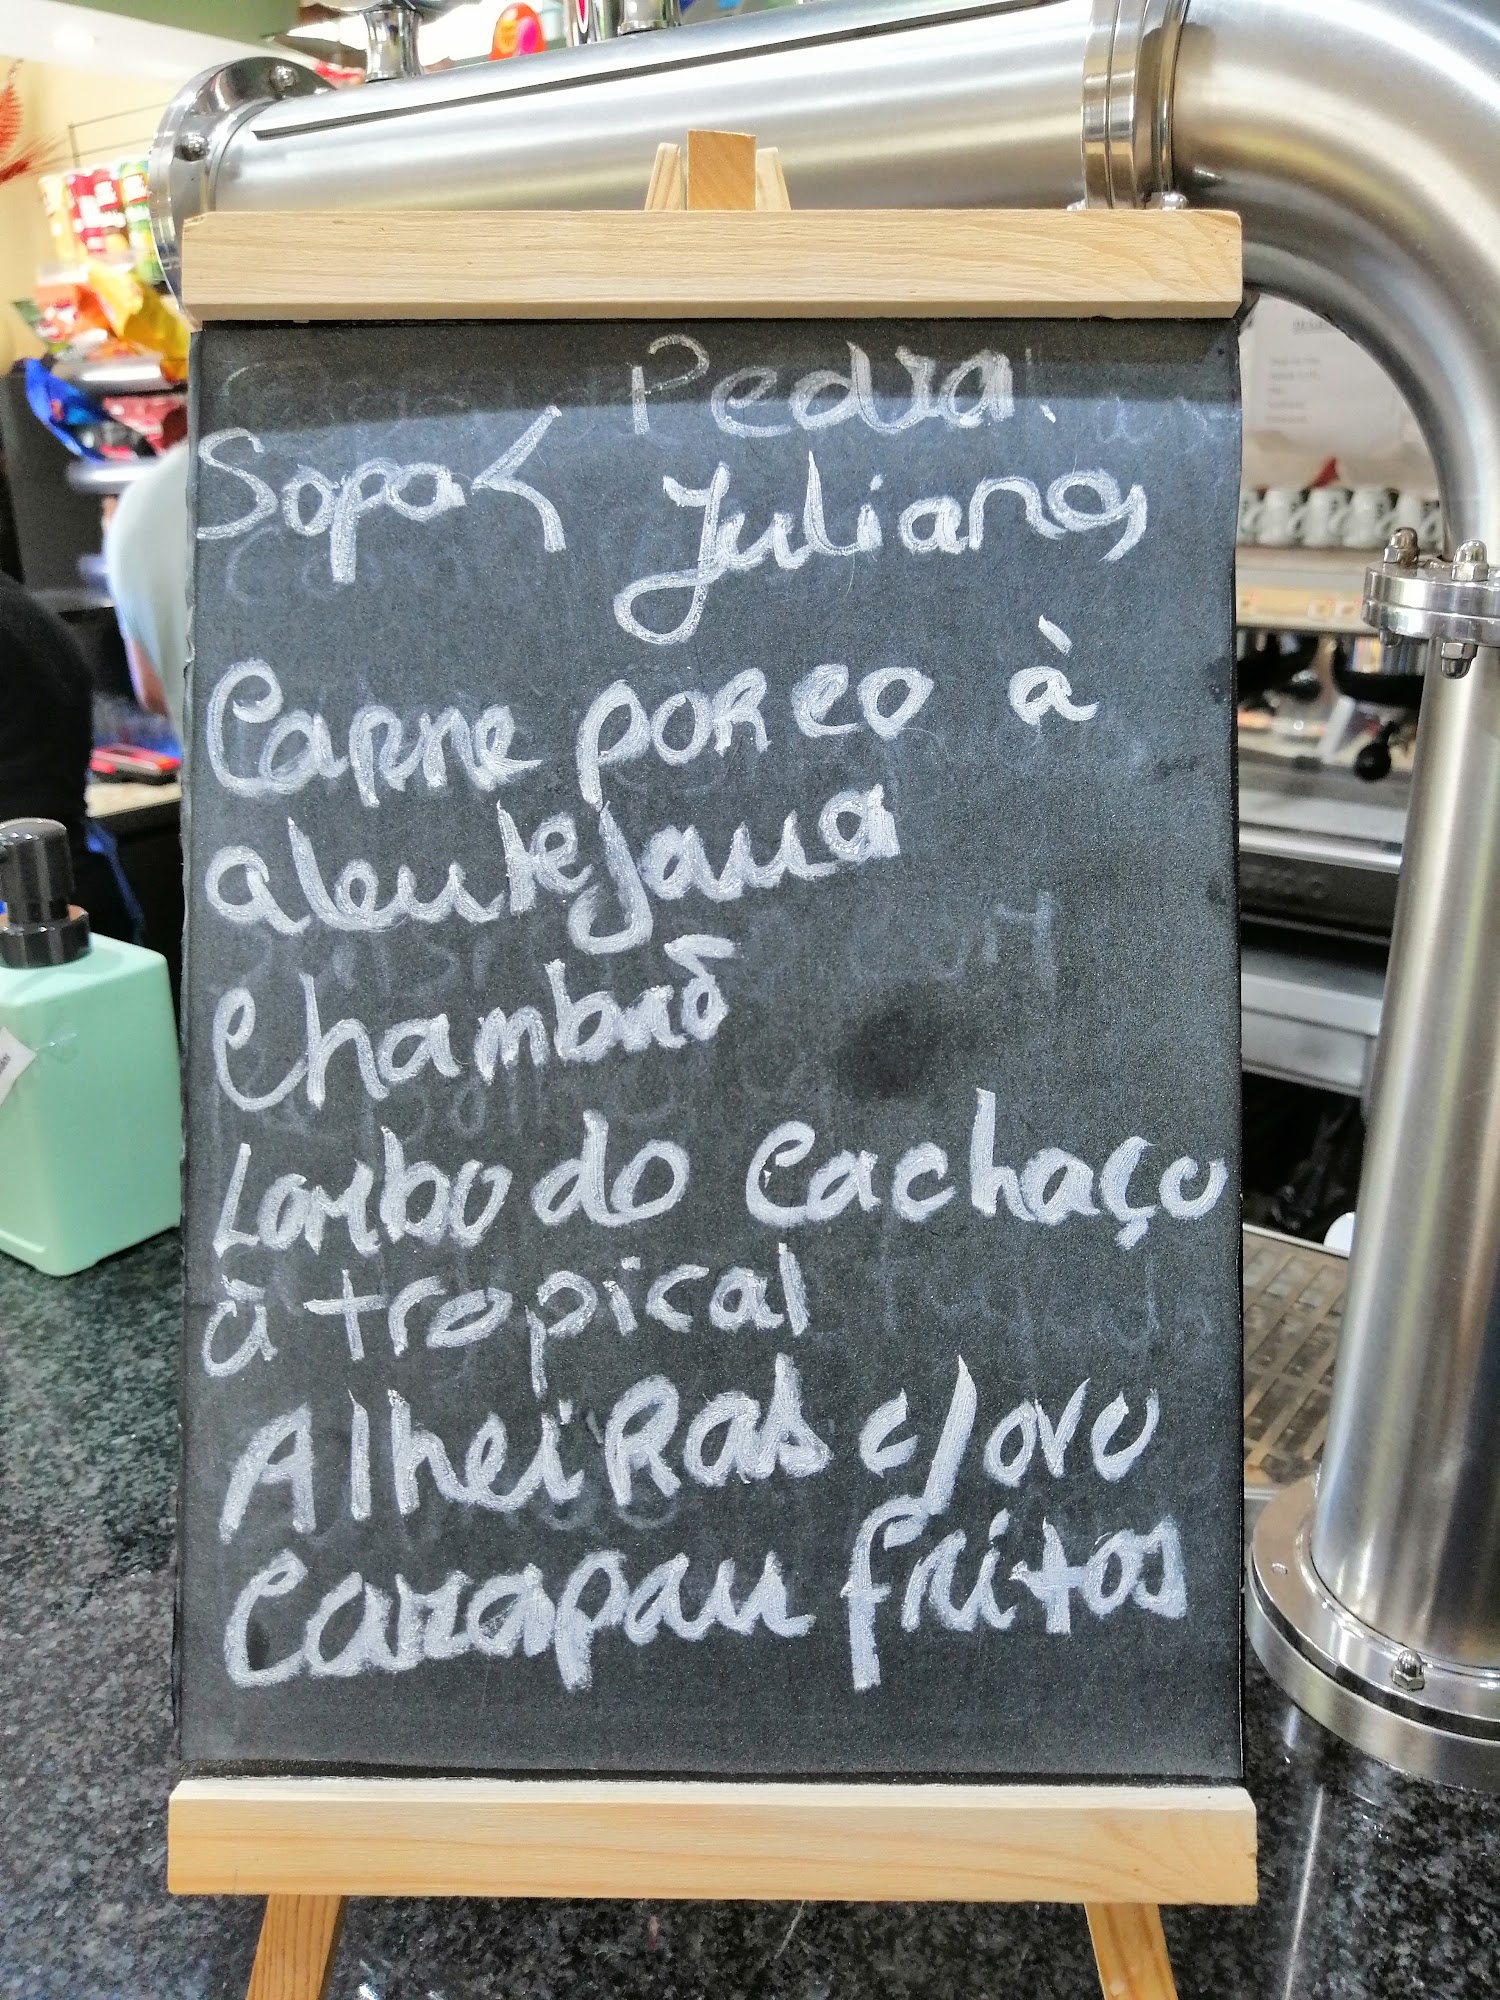 Pedra
Sopa < Juliana
Carne porco à
alentejana
Chambão
Lombo do Cachaço
à tropical
Alheiras c/ovo
Carapau fritos